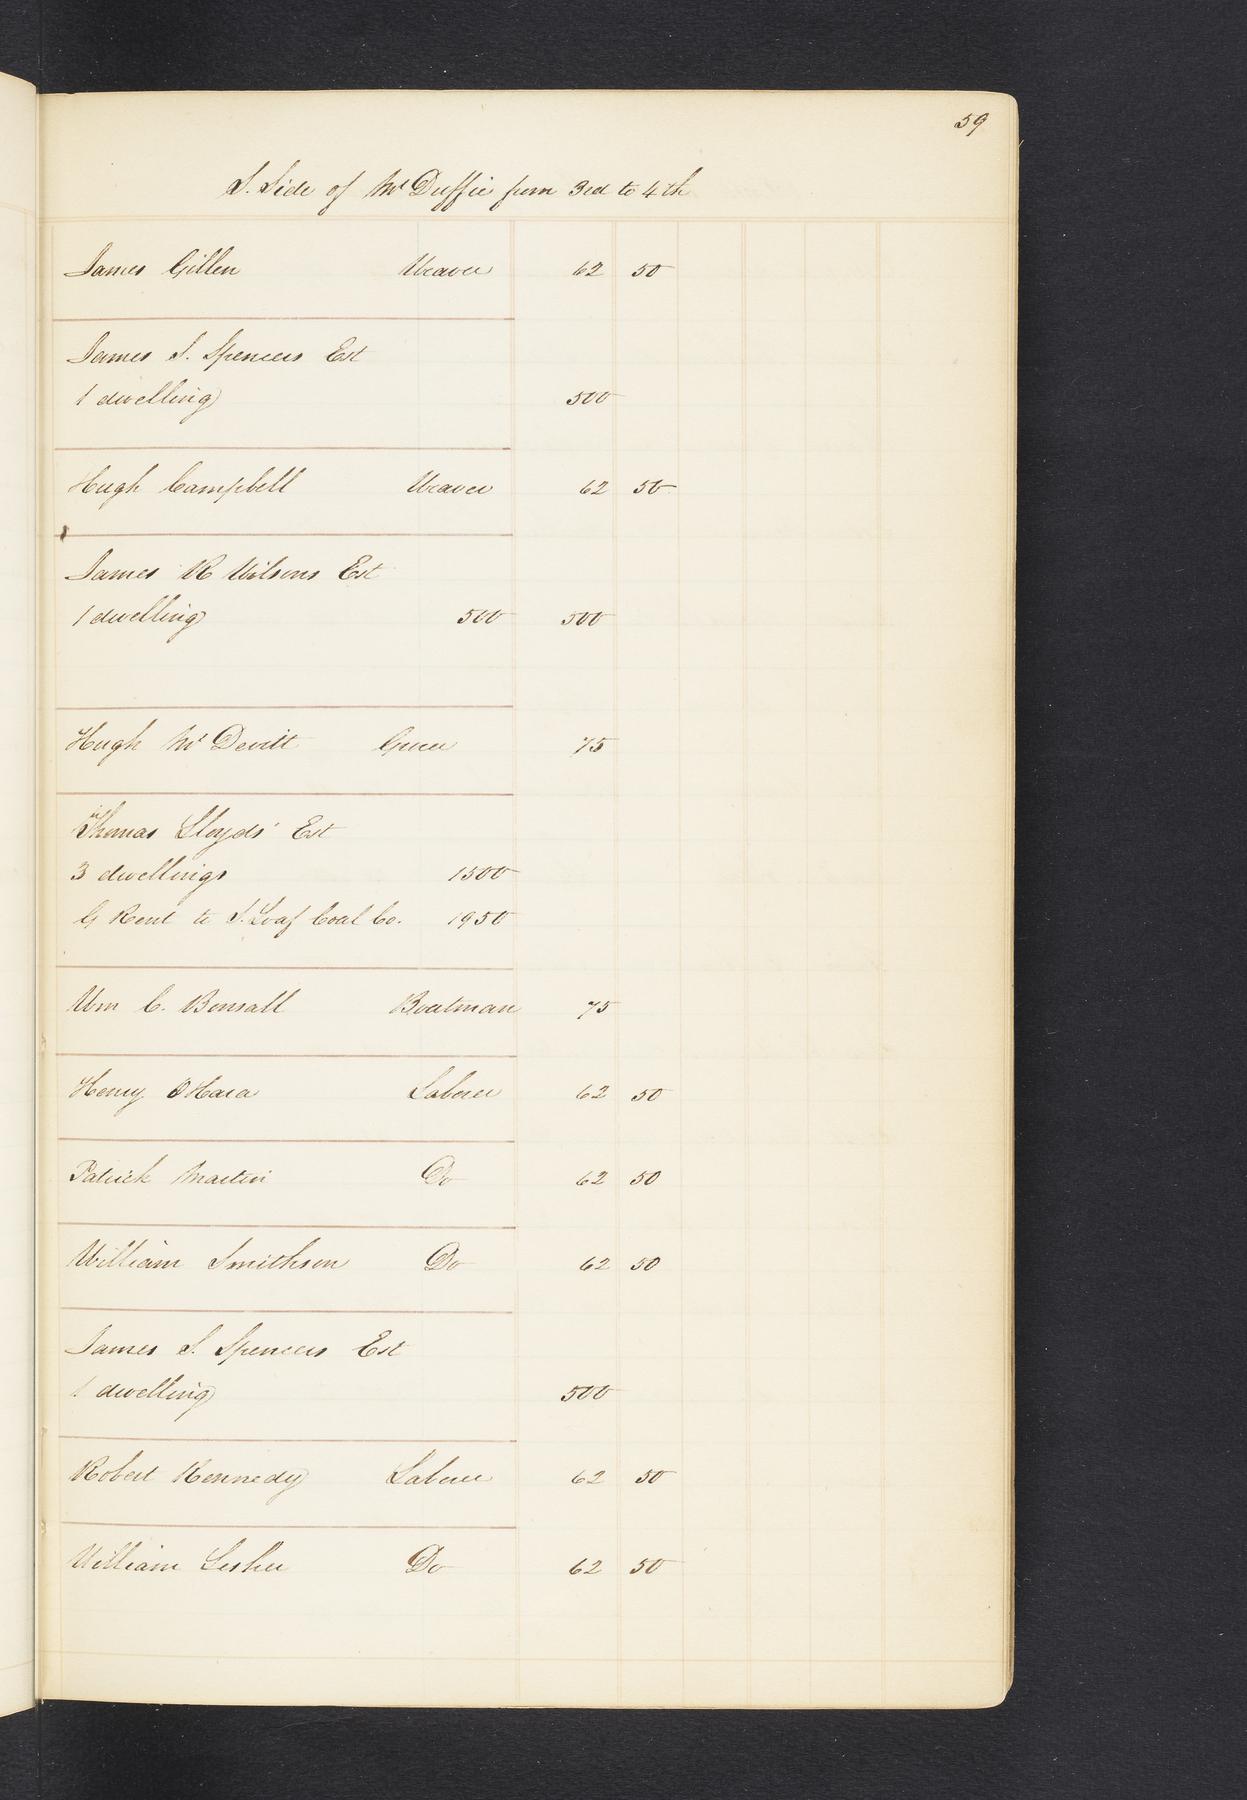 59
S. Side of McDuffie from 3rd to 4th
James Gillen Weaver 62 50
James S. Spencers Est
1 dwelling 500
Hugh Campbell Weaver 62 50
James R Wilsons Est
1 dwelling 500 500
Hugh McDevitt Grocer 75
Thomas Lloyds' Est
3 dwellings 1500
G Rent to S. Loaf Coal Co. 1950
Wm C. Bonsall Boatman 75
Henry O Hara Laborer 62 50
Patrick Martin Do 62 50
William Smithson Do 62 50
James S. Spencers Est
1 dwelling 500
Robert Kennedy Laborer 62 50
William Lesher Do 62 50